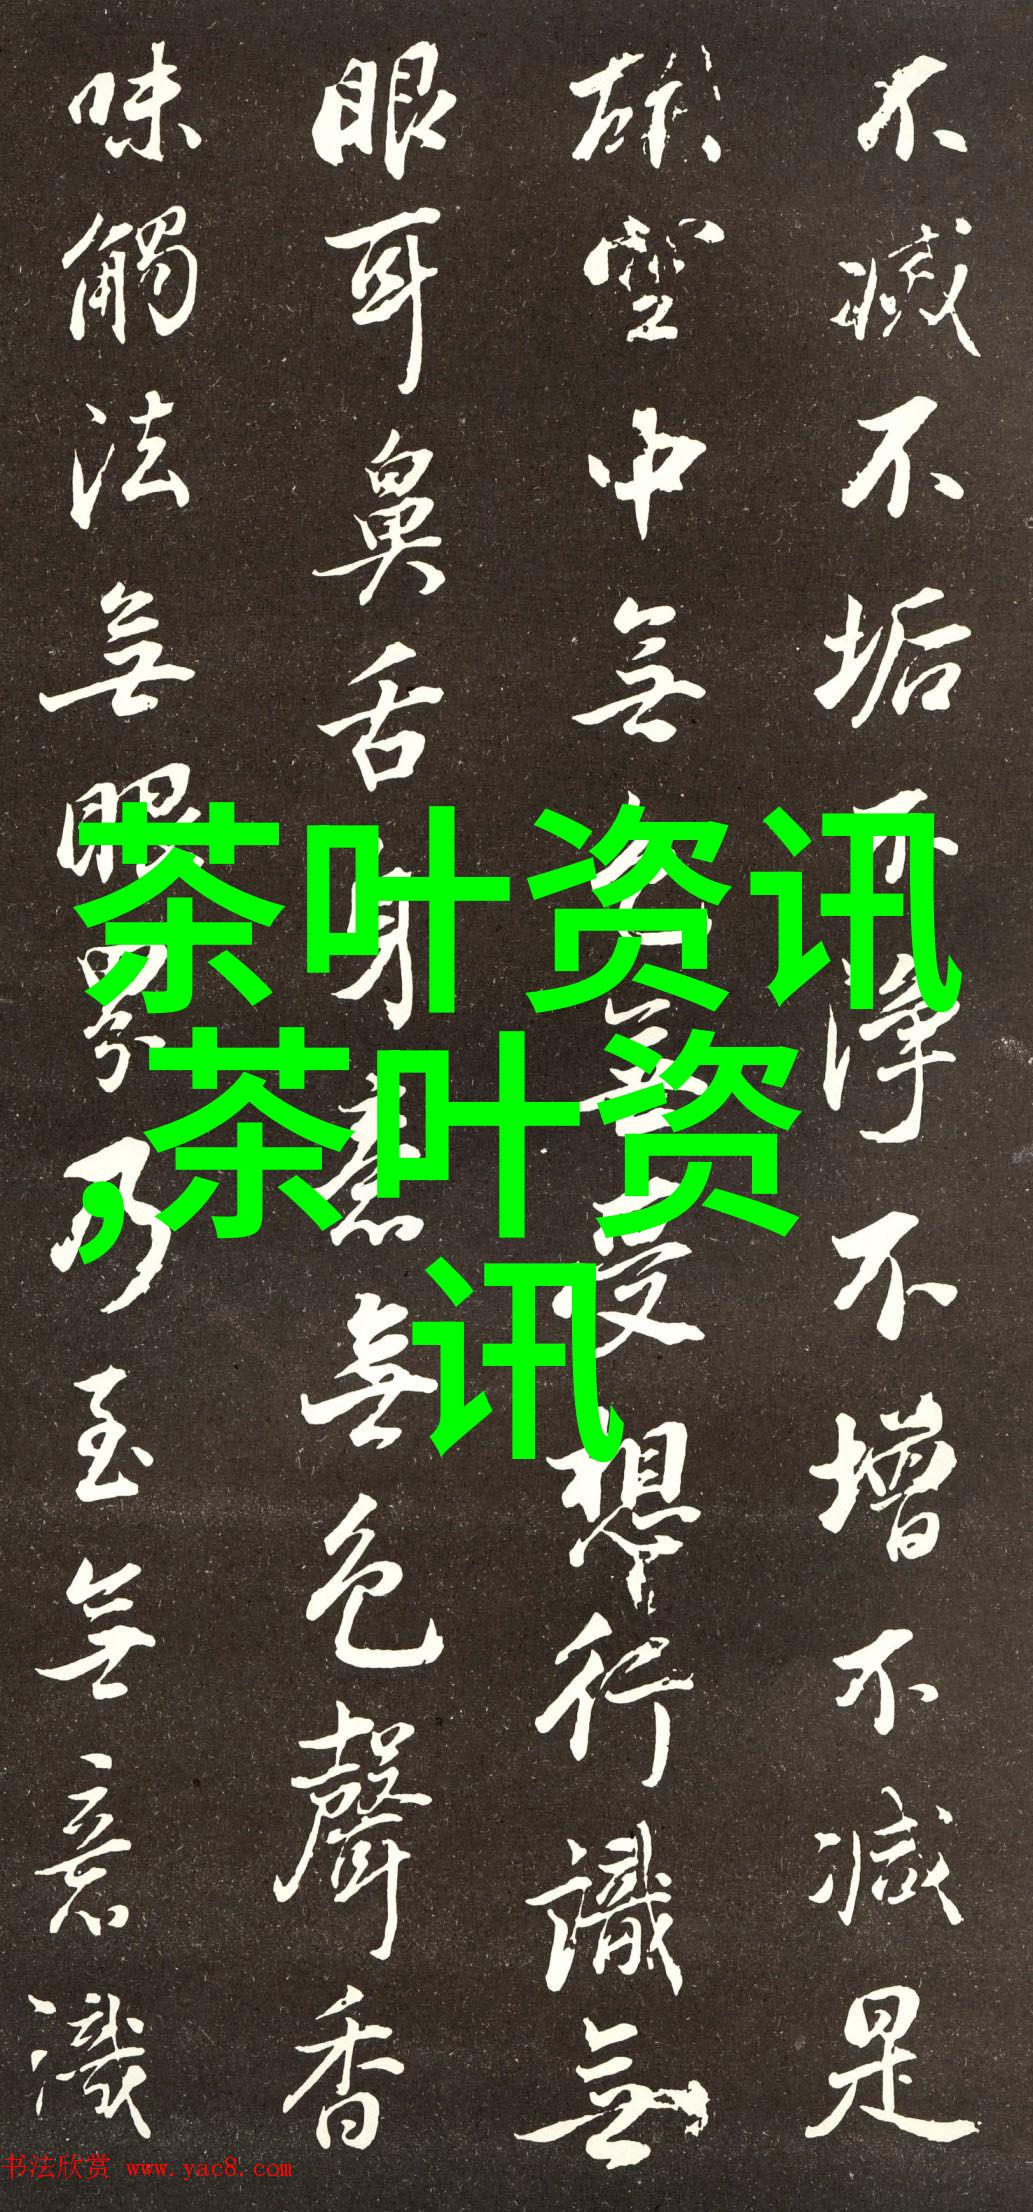 不滅不垢不淨不增不減是
故空中無色無受想行識無
眼耳鼻舌身意無色聲香
味觸法無眼界乃至無意識
茶叶资讯
,茶叶资
讯
书法欣赏 www.yac8.com